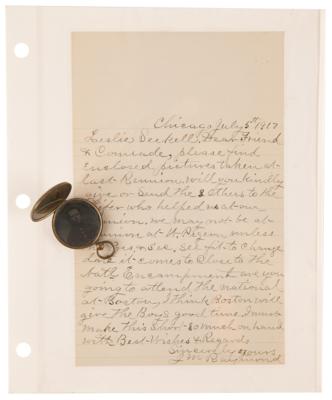 Chicago July 5th 1917
Leslie Seekell, Dear Friend
& Comrade, please find
Enclosed pictures taken at
last Reunion. Will you kindly
give or send the 2 others to the
who helped us at our
we may not be at
at St. unless
& Sec. See fit to change
date it comes to close to the
Natl Encampment are you
going to attend the national
at Boston, I think Boston will
give the Boys good time I must
make this short so much on hand
with Best Wishes & Regards
Sincerely yours
Raymond